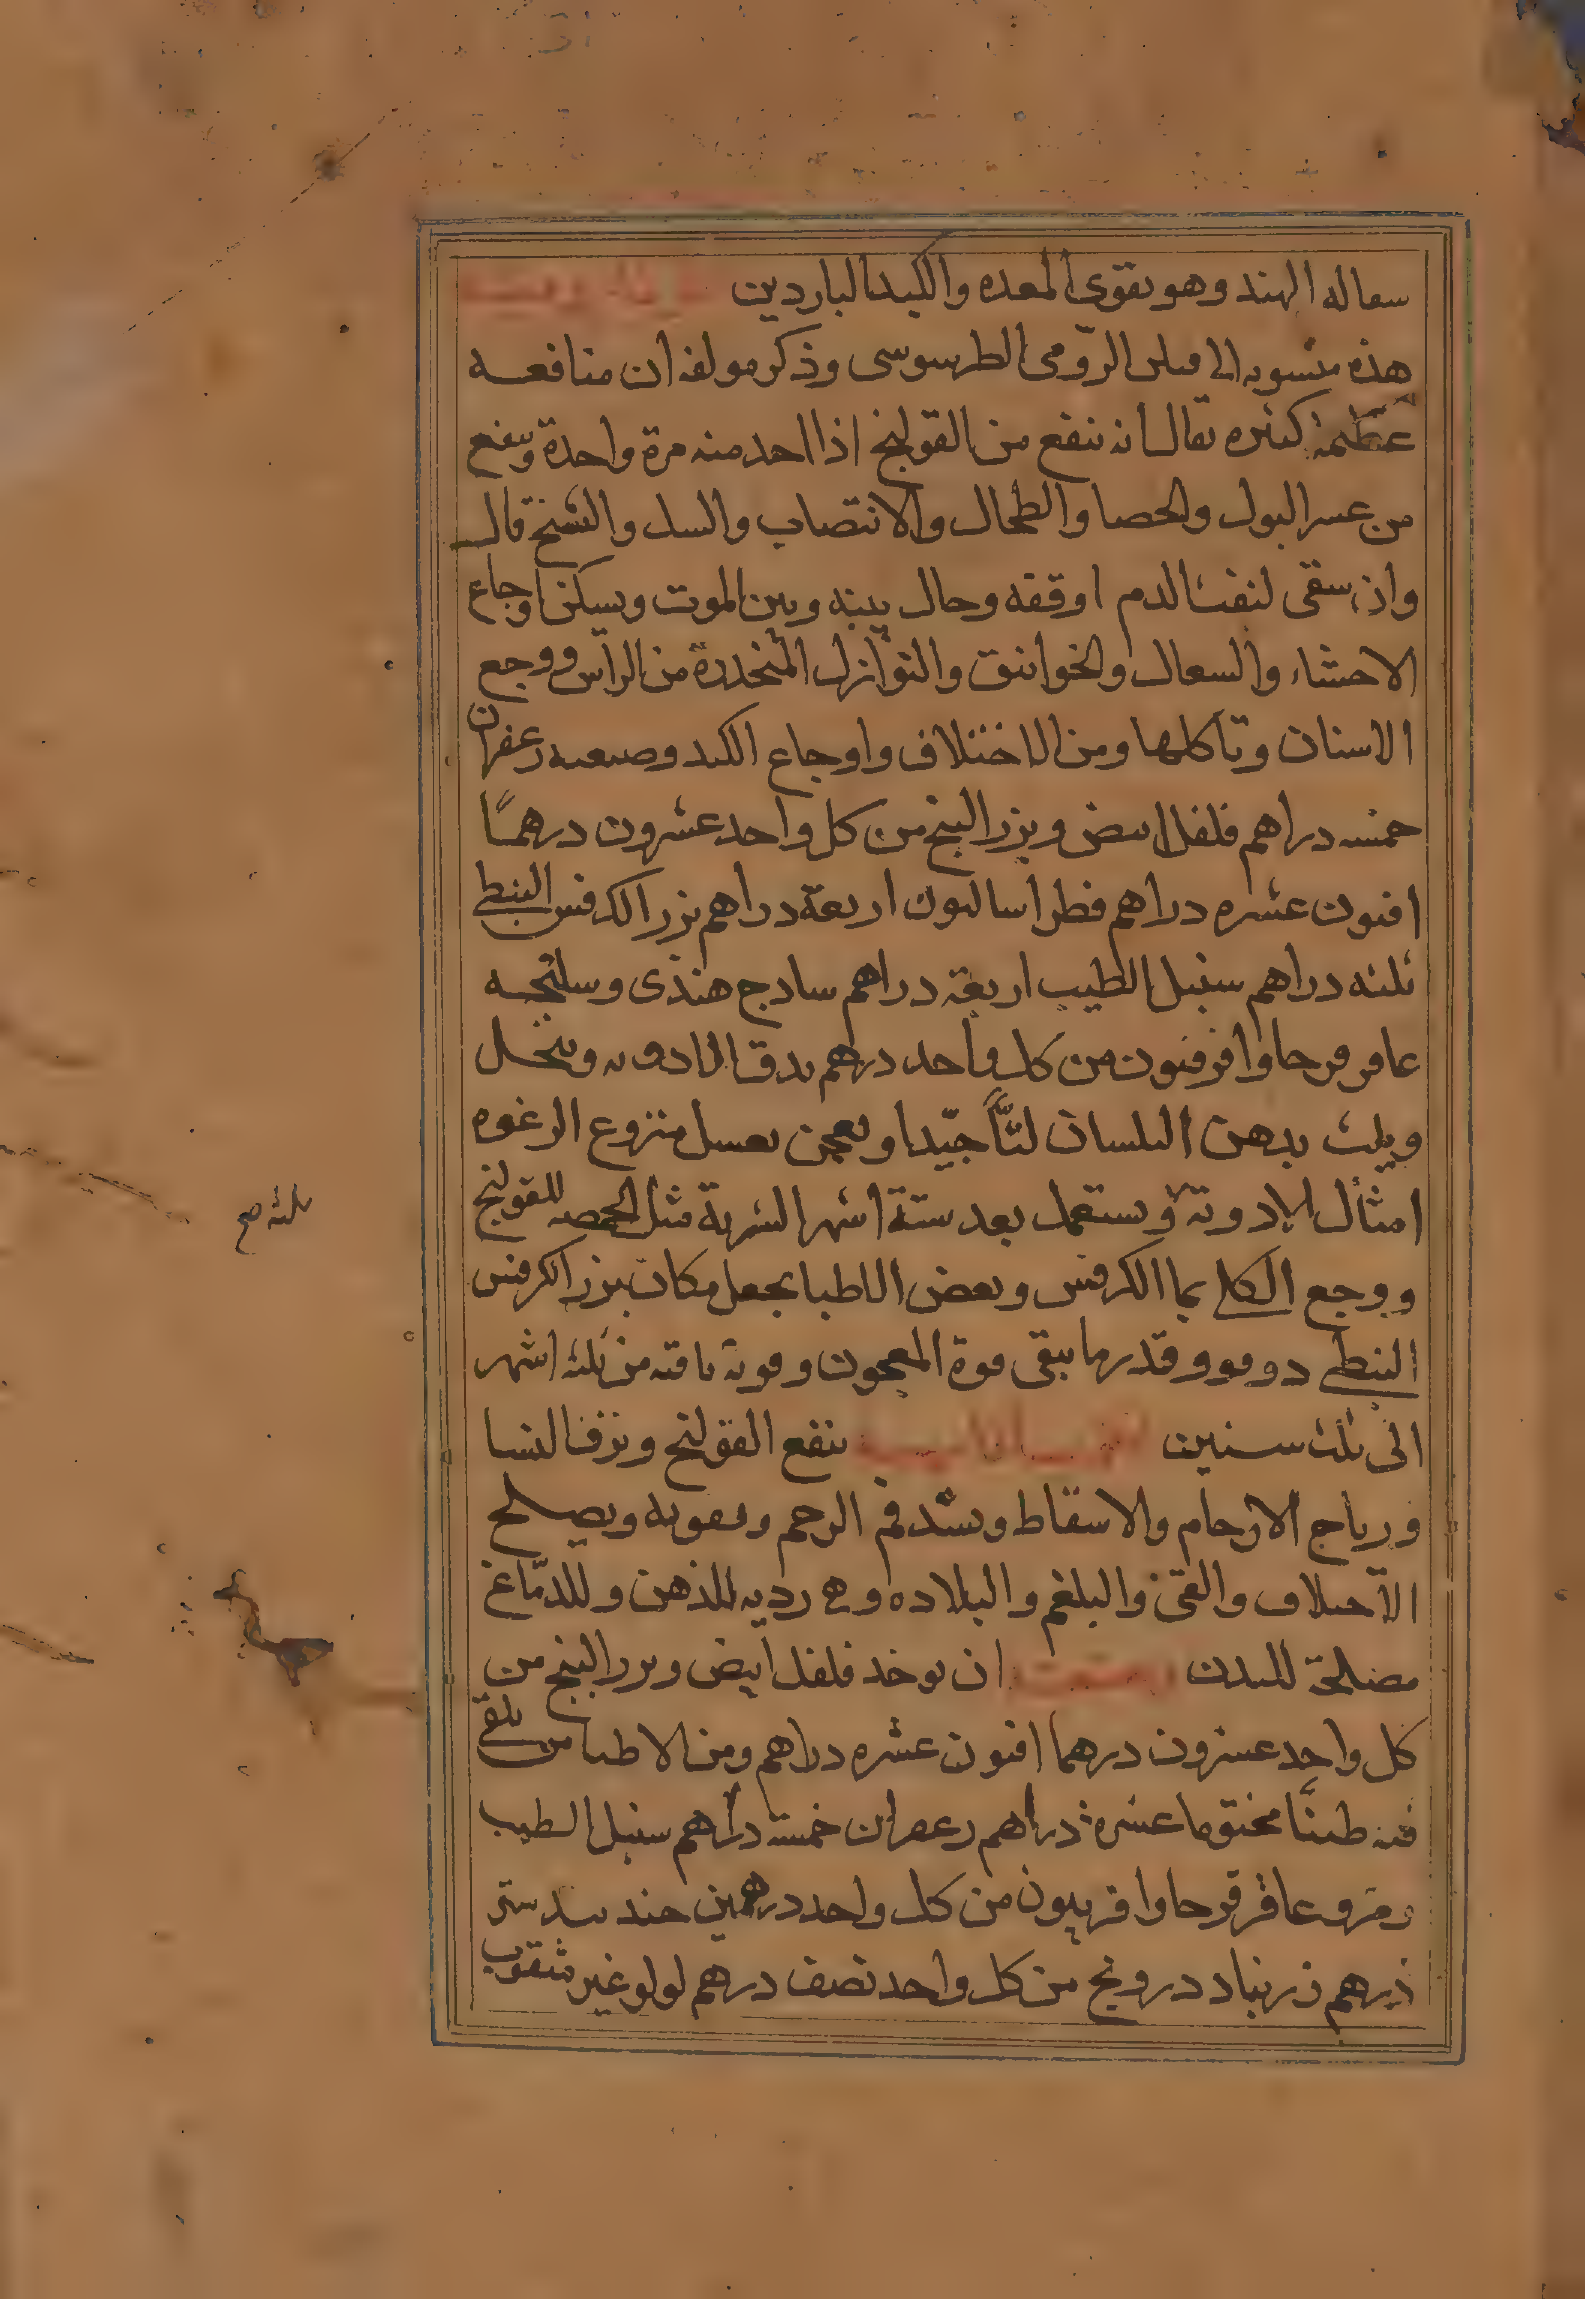 سعاله الهند وهو يقوى المعده والكبد الباردين
هذه منسوبه الى فيلن الرّومى الطرسوسى وذكر مولفه ان منافعه
عظيمة كثيره يقال انه ينفع من القولنج اذا اخذ منه مرة واحدة وينفع
من عسر البول والحصا والطحال والانتصاب والسل والتشنج قال
وان سقى لنفث الدم اوقفه وحال بينه وبين الموت ويسكن اوجاع
الاحشاء والسعال والخوانيق والنوازل المنحدرة من الراس ووجع
الاسنان وتاكلها ومن الاختلاف واوجاع الكبد وصعبه زعفران
خمسه دراهم فلفل ابيض وبزر البنج من كل واحد عشرون درهمًا
افيون عشره دراهم فطراساليون اربعة دراهم بزر الكرفس النبطي
ثلثه دراهم سنبل الطيب اربعة دراهم سادج هندى وسليخه
عاقر قرحا وافرفيون من كل واحد درهم يدق الادويه وينخل
ويلت بدهن البلسان لتًّا جيّدا ويعجن بعسل منزوع الرغوه
ثلثه صح
امثال الادوية ويستعمل بعد ستة اشهر الشربة مثل الحمصه للقولنج
ووجع الكلى بما الكرفس وبعض الاطبا يجعل مكان بزر الكرفس
النبطي دوقو وقدر ما يبقى قوة المعجون وقوته باقيه من ثلثه اشهر
الى ثلث سنين ينفع القولنج ونزف النسا
ورياح الارحام والاسقاط ويشد فم الرحم ويقويه ويصلح
الاختلاف والقئ والبلغم والبلاده وهي رديه للذهن وللدّماغ
مصلحة للبدن ان يوخذ فلفل ابيض وبزر البنج من
كل واحد عشرون درهما افيون عشره دراهم ومن الاطبا من يلقي
فيه طينًا مختوما عشرة دراهم زعفران خمسة دراهم سنبل الطيب
ومرو عاقرقرحا وافربيون من كل واحد درهمين جند بيدستر
درهم زرنباد درونج من كل واحد نصف درهم لولو غير مثقوب